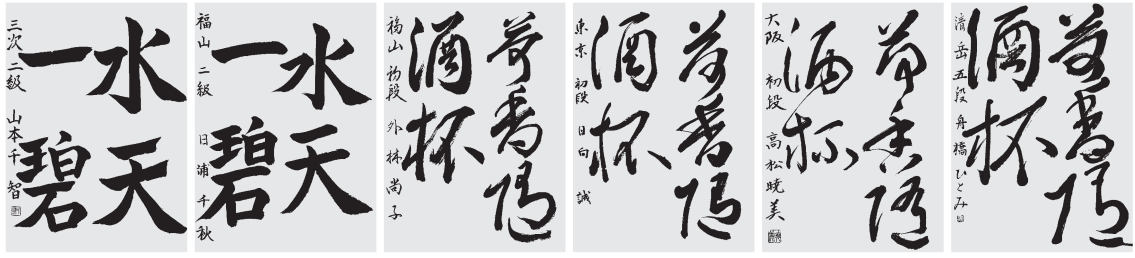 水天
一碧
三次 二級 山本千智
水天
一碧
福山 二級 日浦千秋
荷香随
酒杯
福山 初段 外林尚子
荷香随
酒杯
東京 初段 日向 誠
荷香随
酒杯
大阪 初段 高松暁美
荷香随
酒杯
清岳 五段 舟橋ひとみ